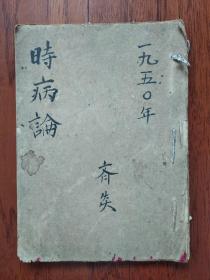 一九五〇年
時病論
斉荧